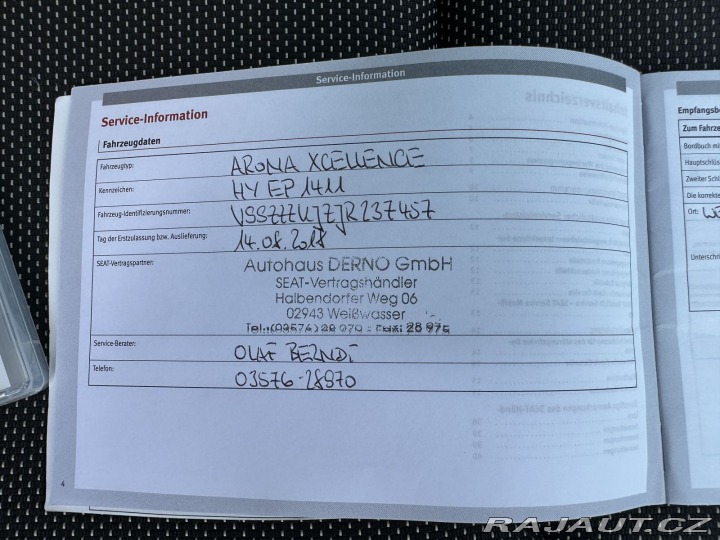 Service-Information
Service-Information
Fahrzeugdaten
Fahrzeugtyp: ARONA XCELLENCE
Kennzeichen: HY EP 1411
Fahrzeug-Identifizierungsnummer: VSSZZZKJZJR237457
Tag der Erstzulassung bzw. Auslieferung: 14.08.2018
SEAT-Vertragspartner: Autohaus DERNO GmbH
SEAT-Vertragshändler
Halbendorfer Weg 06
02943 Weißwasser
Tel.: (03576) 28 970 - Fax: 28 97
Service-Berater: OLAF BERNDT
Telefon: 03576-28970
4
Empfangsbe
Zum Fahrze
Bordbuch mi
Hauptschlüs
Zweiter Schl
Die korrekte
Ort: WE
Unterschri
RAJAUT.CZ